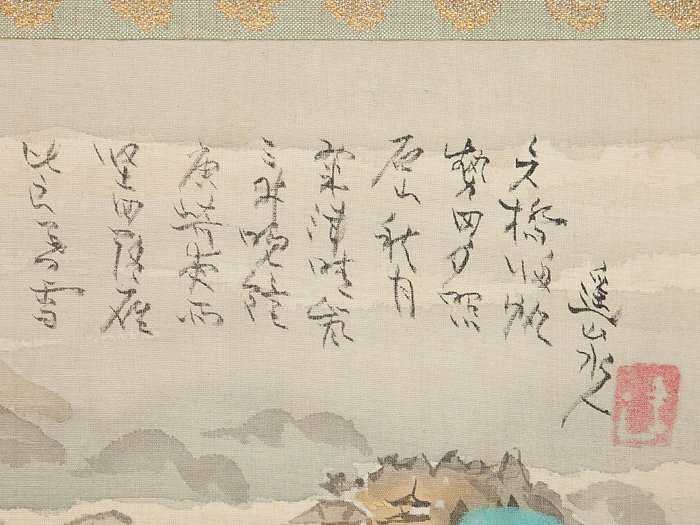 矢橋帰帆
勢田夕照
石山秋月
粟津晴嵐
三井晩鐘
唐崎夜雨
堅田落雁
比良暮雪